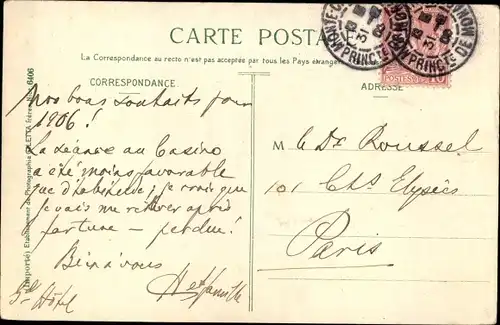 CARTE POSTALE
La Correspondance au recto n'est pas acceptée par tous les Pays étrangers
CORRESPONDANCE
ADRESSE
Nos bons souhaits pour
1906!
La séance au Casino
a été moins favorable
que d'habitude, je crois que
je vais me retirer après
fortune - perdue!
Bien à vous
Hôtel
M le Dr Roussel
101 Chs Elysées
Paris
GILETTA
6406
MONTE
PRINCTE DE MON
POSTES